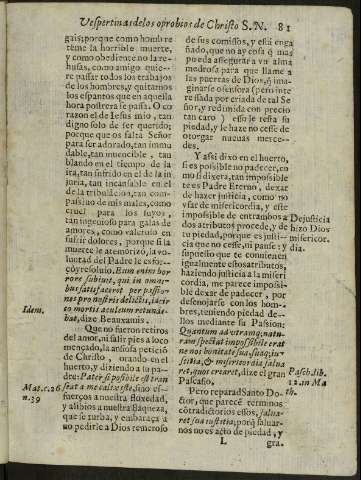 Vespertinas de los oprobios de Christo S.N. 81
gais; porque como hombre
teme la horrible muerte,
y como obediente no la re-
husas, como amigo quie-
re passar todos los trabajos
de los hombres, y quitamos
los espantos que en aquella
hora postrera se passa. O co
razon el de Iesus mio, tan
digno solo de ser querido;
porque que os falta Señor
para ser adorado, tan inmu
dable, tan invencible, tan
blando en el tiempo de la
ira, tan sufrido en el de la in
juria, tan incansable en el
de la tribulacion, tan com-
passivo de mis males, como
cruel para los tuyos,
tan ingenioso para galas de
amores, como valeroso en
sufrir dolores, porque si la
muerte le atemorizo, la vo-
luntad del Padre le esfor-
çò y resolviò. Eum enim hor
rore subiuit, qui in omni-
bus satisfaceret per passio-
nes pro nostris delictis, iácir
co mortis aculeum retunde-
bat, dize Beauxamis.
Idem.
Que no fueron retiros
del amor, ni salir pies a loco
mencado, la ansiosa peticiõ
de Christo, orando en el
huerto, y diziendo a tu pa-
dre: Pater si possibile est tran
seat a me calix iste, sino es-
fuerços a nuestra floxedad,
y alibios a nuestra flaqueza,
que se turba, y embaraça a
no pedirle a Dios temeroso
Mat. c. 26
n. 39
de sus comissos, y está enga
ñado, que no ay cosa q̃ mas
pueda assegurar a vn alma
medrosa para que llame a
las puertas de Dios, q̃ ima-
ginarse ofensora (pero inte
ressada por criada de tal Se
ñor, y redimida con precio
tan caro) esso le resta su
piedad, y le haze no cesse de
otorgar nueuas merce-
des.
Y assi dixo en el huerto,
si es possible no padecer, co
mo si dixera, tan impossible
te es Padre Eterno, dexar
de hazer justicia, como no
vsar de misericordia, y este
impossible de entrambos a
dos atributos procede, y de
tu piedad, porque es justi-
cia que no cesse, ni passe: y
supuesto que te conuienen
igualmente estos atributos,
haziendo justicia a la miseri
cordia, me parece impossi-
ble dexar padecer, por
desenojarte con los hom-
bres, teniendo piedad de-
llos mediante su Passion;
Quantum ad utramq; natu-
ram spectat impossibile erat
ne non bonitate sua, suaq; iu-
stitia, & misericordia salua
ret, quos crearet, dize el gran
Pascasio.
De justicia
hizo Dios
misericor.
dia.
Pasch. lib.
12. in Ma
th.
Pero reparad Santo Do
ctor, que parecen terminos
cõtradictorios essos, salua
ret sua iustitia; porq̃ saluar-
nos no es acto de piedad, y
L gra.